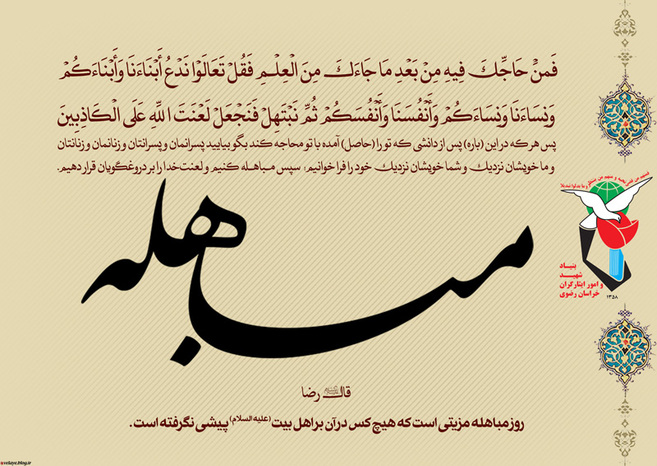 فَمَنْ حَاجَّكَ فِيهِ مِنْ بَعْدِ مَا جَاءَكَ مِنَ الْعِلْمِ فَقُلْ تَعَالَوْا نَدْعُ أَبْنَاءَنَا وَأَبْنَاءَكُمْ
وَنِسَاءَنَا وَنِسَاءَكُمْ وَأَنْفُسَنَا وَأَنْفُسَكُمْ ثُمَّ نَبْتَهِلْ فَنَجْعَلْ لَعْنَتَ اللَّهِ عَلَى الْكَاذِبِينَ
پس هر که در این (باره) پس از دانشی که تو را (حاصل) آمده با تو محاجه کند بگو بیایید پسرانمان و پسرانتان و زنانمان و زنانتان
و ما خویشان نزدیک و شما خویشان نزدیک خود را فرا خوانیم؛ سپس مباهله کنیم و لعنت خدا را بر دروغگویان قرار دهیم.
مباهله
بنیاد
شهید
و امور ایثارگران
خراسان رضوی
۱۳۵۸
قال رضا
روز مباهله مزیتی است که هیچ کس در آن بر اهل بیت (علیه السلام) پیشی نگرفته است.